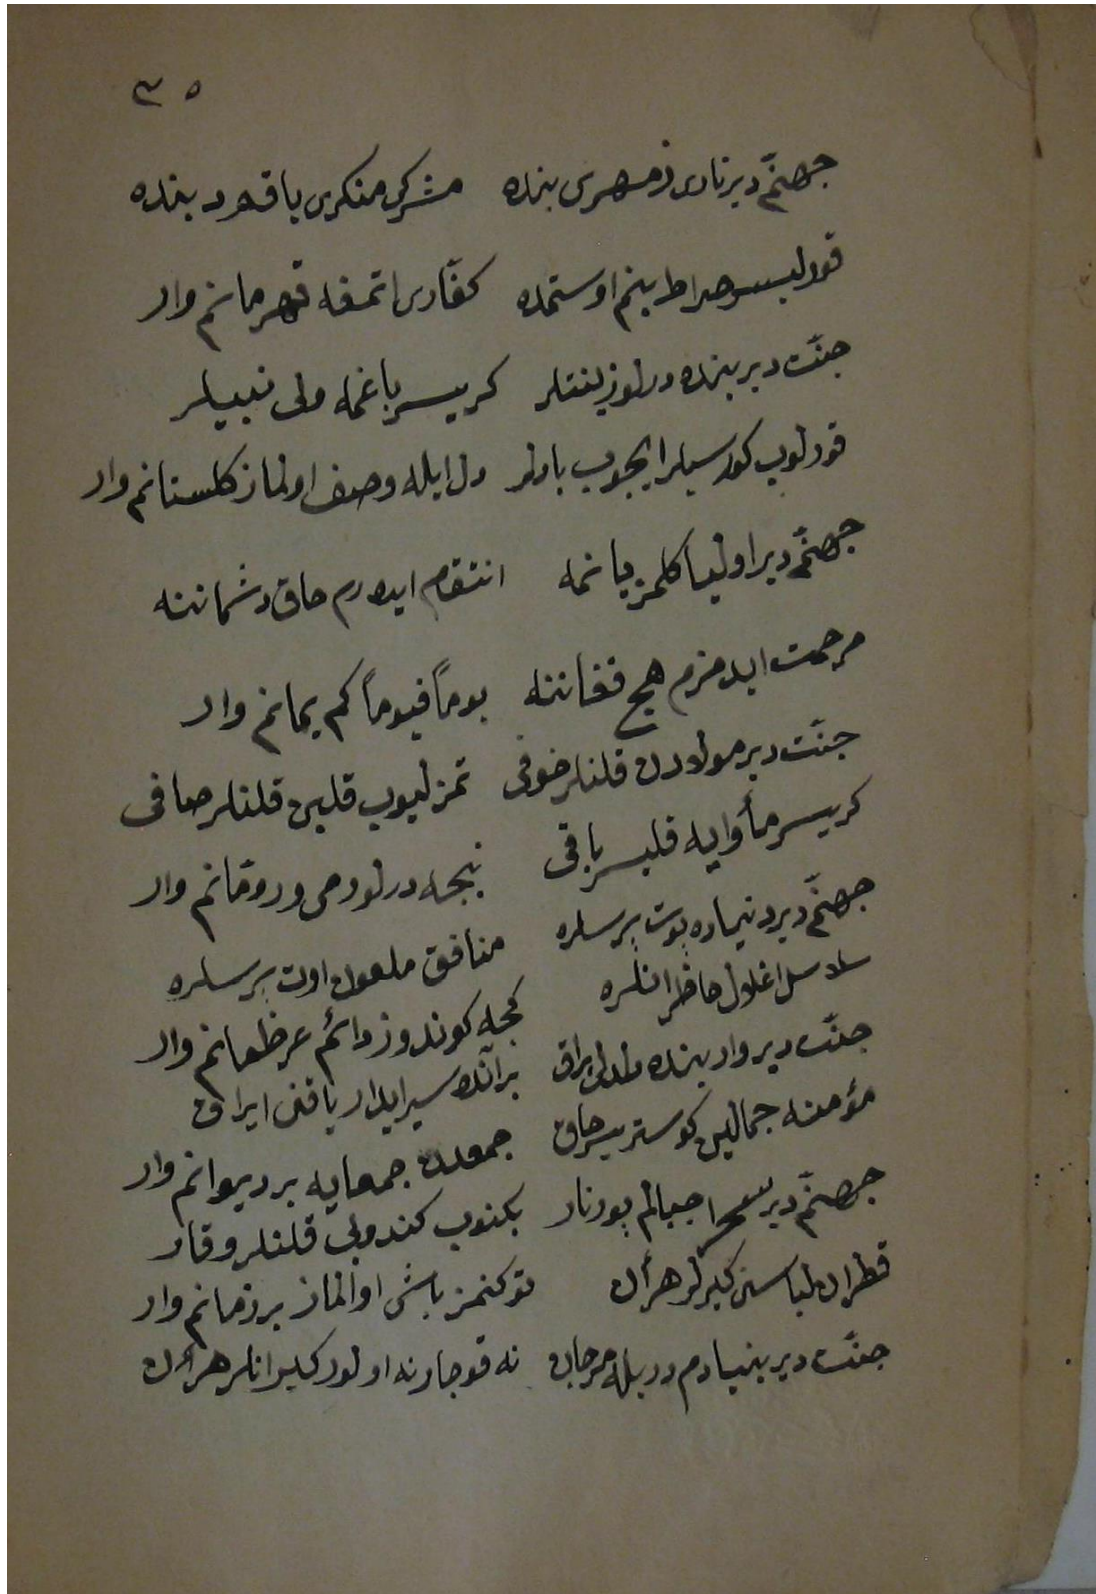 ٣٥
جهنّم دير نارى زمهرى بنده مشركى منكرى ياقه‌رد بنده
قورليسر صراط بنم اوستمده كفّارى اتمغه قهرمانم وار
جنّت دير بنده درلو زينتلر كريسر باغمه ولى نبيلر
قورلوب كورسيلر ايچوب بادلر دل ايله وصف اولماز كلستانم وار
جهنّم دير اوليا كلمز يانمه انتقام ايدرم حاق دشماننه
مرحمت ايدمزم هيچ فغاننه يوماً فيوماً كم يمانم وار
جنّت دير مولادن قلنلر خوفى تمزليوب قلبن قلنلر صافى
كريسر مأوايه قليسر باقى نيجه درلو حورى وروقانم وار
جهنّم دير دنياده بوت پرسلره منافق ملعون اوت پرسلره
سلاسل اغلال حاظر انلره كجه كوندوز دائم عرظمانم وار
جنّت دير وار بنده دلدل براق بر آنده سير ايدار ياقنى ايراق
مؤمنه جمالين كوستريسر حاق جمعدن جمعايه بر ديوانم وار
جهنّم دير جبالم بو نار بكنوب كندوبى قلنلر وقار
قطران لباسنى كيرلر هر آن توكنمز باشى اوالماز بر زمانم وار
جنّت دير بنيادم در يله مرجان نه قوجار نه اولور كلير انلر هر آن